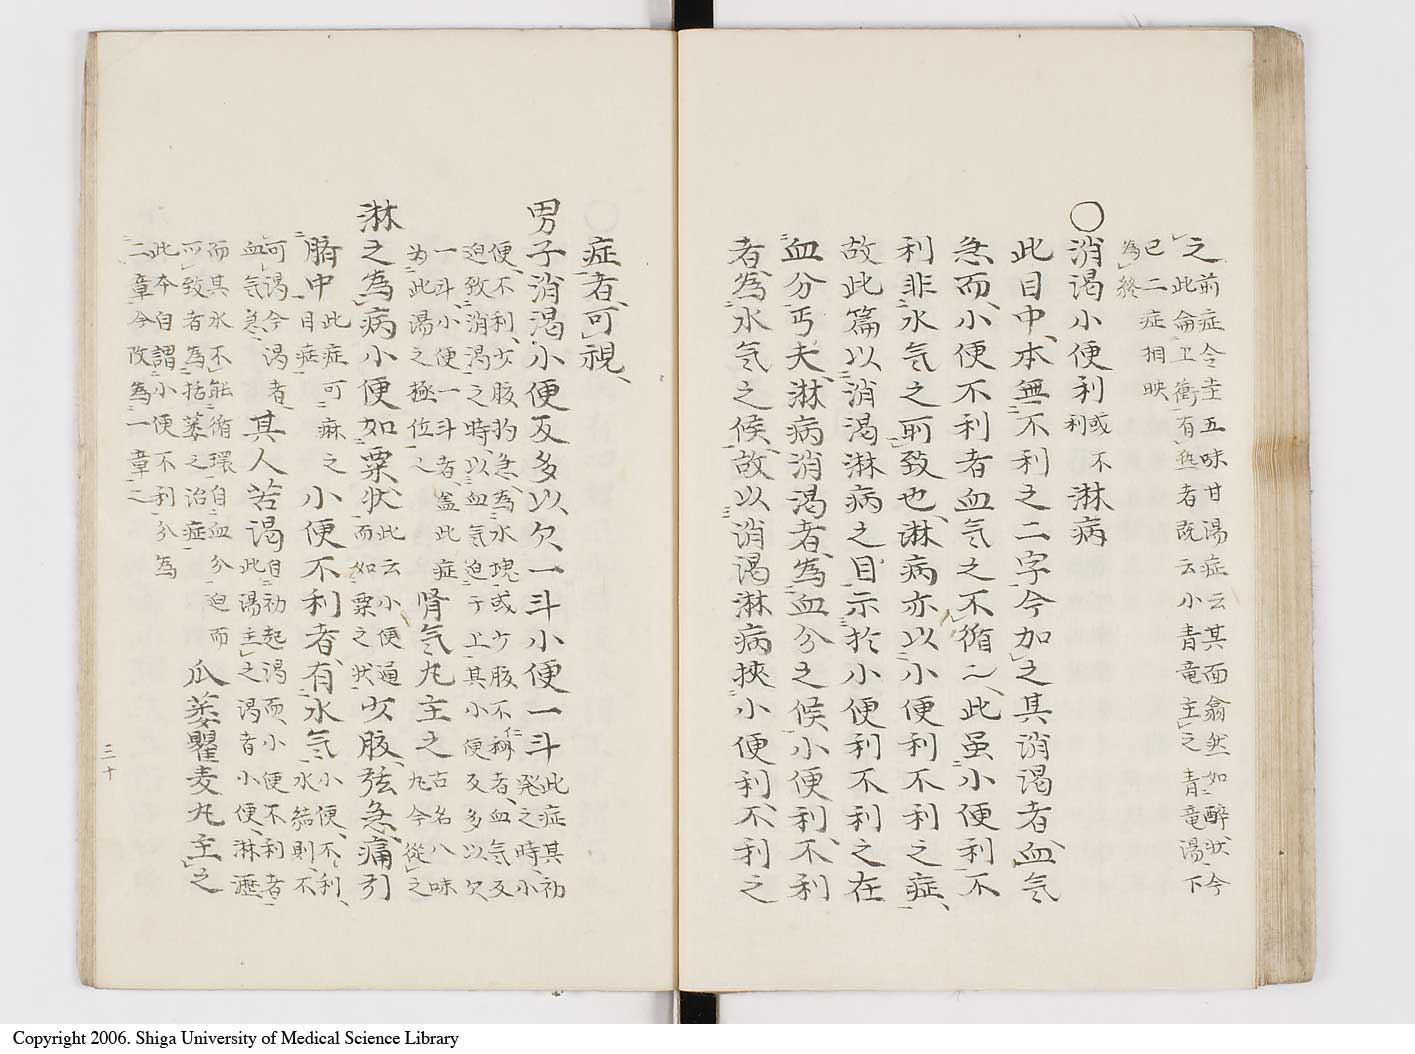 之前症今圭五味甘湯症云其面翕然如醉状今
此侖上衝有熱者既云小青竜主之青竜湯下
已二症相映
為終
〇消渇小便利或不利淋病
此目中本無不利之二字今加之其消渇者血気
急而小便不利者血気之不循々此虽小便利不
利非水気之所致也淋病亦以小便利不利之症
故此篇以消渇淋病之目示於小便利不利之在
血分丐夫淋病消渇者為血分之候小便利不利
者為水気之候故以消渇淋病挾小便利不利之
症者可視
男子消渇小便反多以欠一斗小便一斗此症其初発之時小
便不利少腹拘急為水塊或少腹不稱者血気反
迫致消渇之時以血気迫于上其小便反多以欠
一斗小便一斗者盖此症腎気丸主之古名八味丸今從之
为此湯之極位之
淋之為病小便如粟状此云小便通而如粟之状少腹弦急痛引
臍中此症可麻之目症小便不利者有水気小便不利水結則不
可渇今渇者
血気急其人苦渇自初起渇而小便不利者此湯主之渇者小便淋瀝
而其水不能循環自血分迫而
可致者為括蒌之治症瓜蒌瞿麦丸主之
此本白謂小便不利分為
二章今改為一章之
三十
Copyright 2006. Shiga University of Medical Science Library